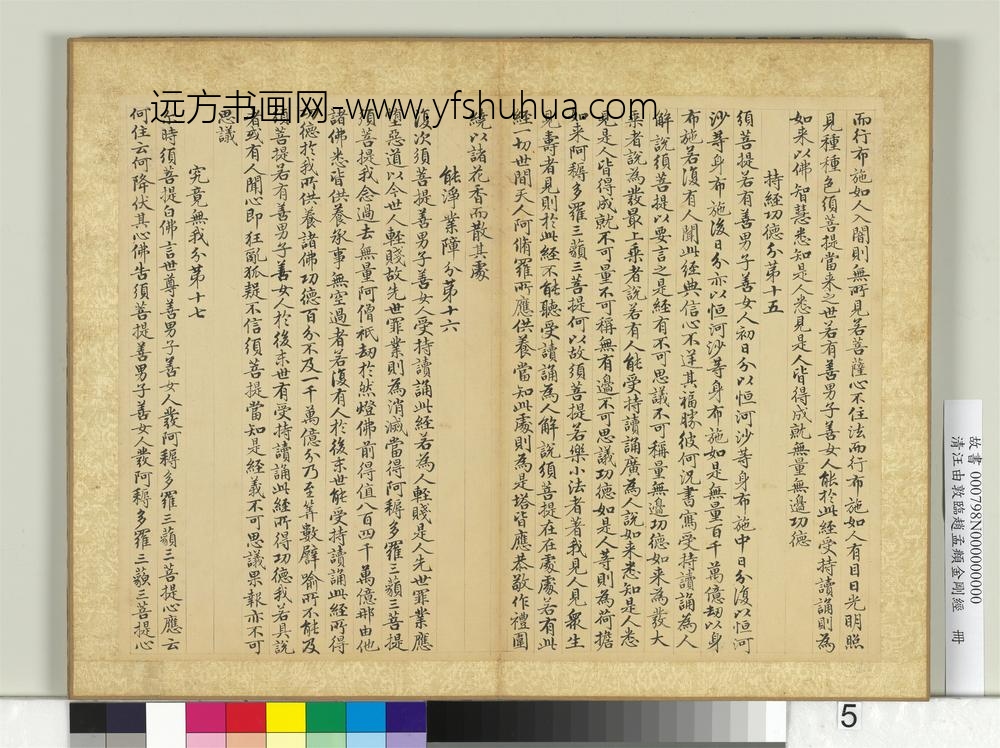 远方书画网-www.yfshuhua.com
而行布施如人入闇則無所見若菩薩心不住法而行布施如人有目日光明照
見種種色須菩提當來之世若有善男子善女人能於此經受持讀誦則為
如來以佛智慧悉知是人悉見是人皆得成就無量無邊功德
持經功德分第十五
須菩提若有善男子善女人初日分以恒河沙等身布施中日分復以恒河
沙等身布施後日分亦以恒河沙等身布施如是無量百千萬億劫以身
布施若復有人聞此經典信心不逆其福勝彼何況書寫受持讀誦為人
解說須菩提以要言之是經有不可思議不可稱量無邊功德如來為發大
乘者說為發最上乘者說若有人能受持讀誦廣為人說如來悉知是人悉
見是人皆得成就不可量不可稱無有邊不可思議功德如是人等則為荷擔
如來阿耨多羅三藐三菩提何以故須菩提若樂小法者著我見人見衆生
見壽者見則於此經不能聽受讀誦為人解說須菩提在在處處若有此
經一切世間天人阿脩羅所應供養當知此處則為是塔皆應恭敬作禮圍
繞以諸花香而散其處
能淨業障分第十六
復次須菩提善男子善女人受持讀誦此經若為人輕賤是人先世罪業應
墮惡道以今世人輕賤故先世罪業則為消滅當得阿耨多羅三藐三菩提
須菩提我念過去無量阿僧祇劫於然燈佛前得值八百四千萬億那由他
諸佛悉皆供養承事無空過者若復有人於後末世能受持讀誦此經所得
功德於我所供養諸佛功德百分不及一千萬億分乃至算數譬喻所不能及
須菩提若有善男子善女人於後末世有受持讀誦此經所得功德我若具說
者或有人聞心即狂亂狐疑不信須菩提當知是經義不可思議果報亦不可
思議
究竟無我分第十七
爾時須菩提白佛言世尊善男子善女人發阿耨多羅三藐三菩提心應云
何住云何降伏其心佛告須菩提善男子善女人發阿耨多羅三藐三菩提心
故書 000798N000000000
清汪由敦臨趙孟頫金剛經 冊
5